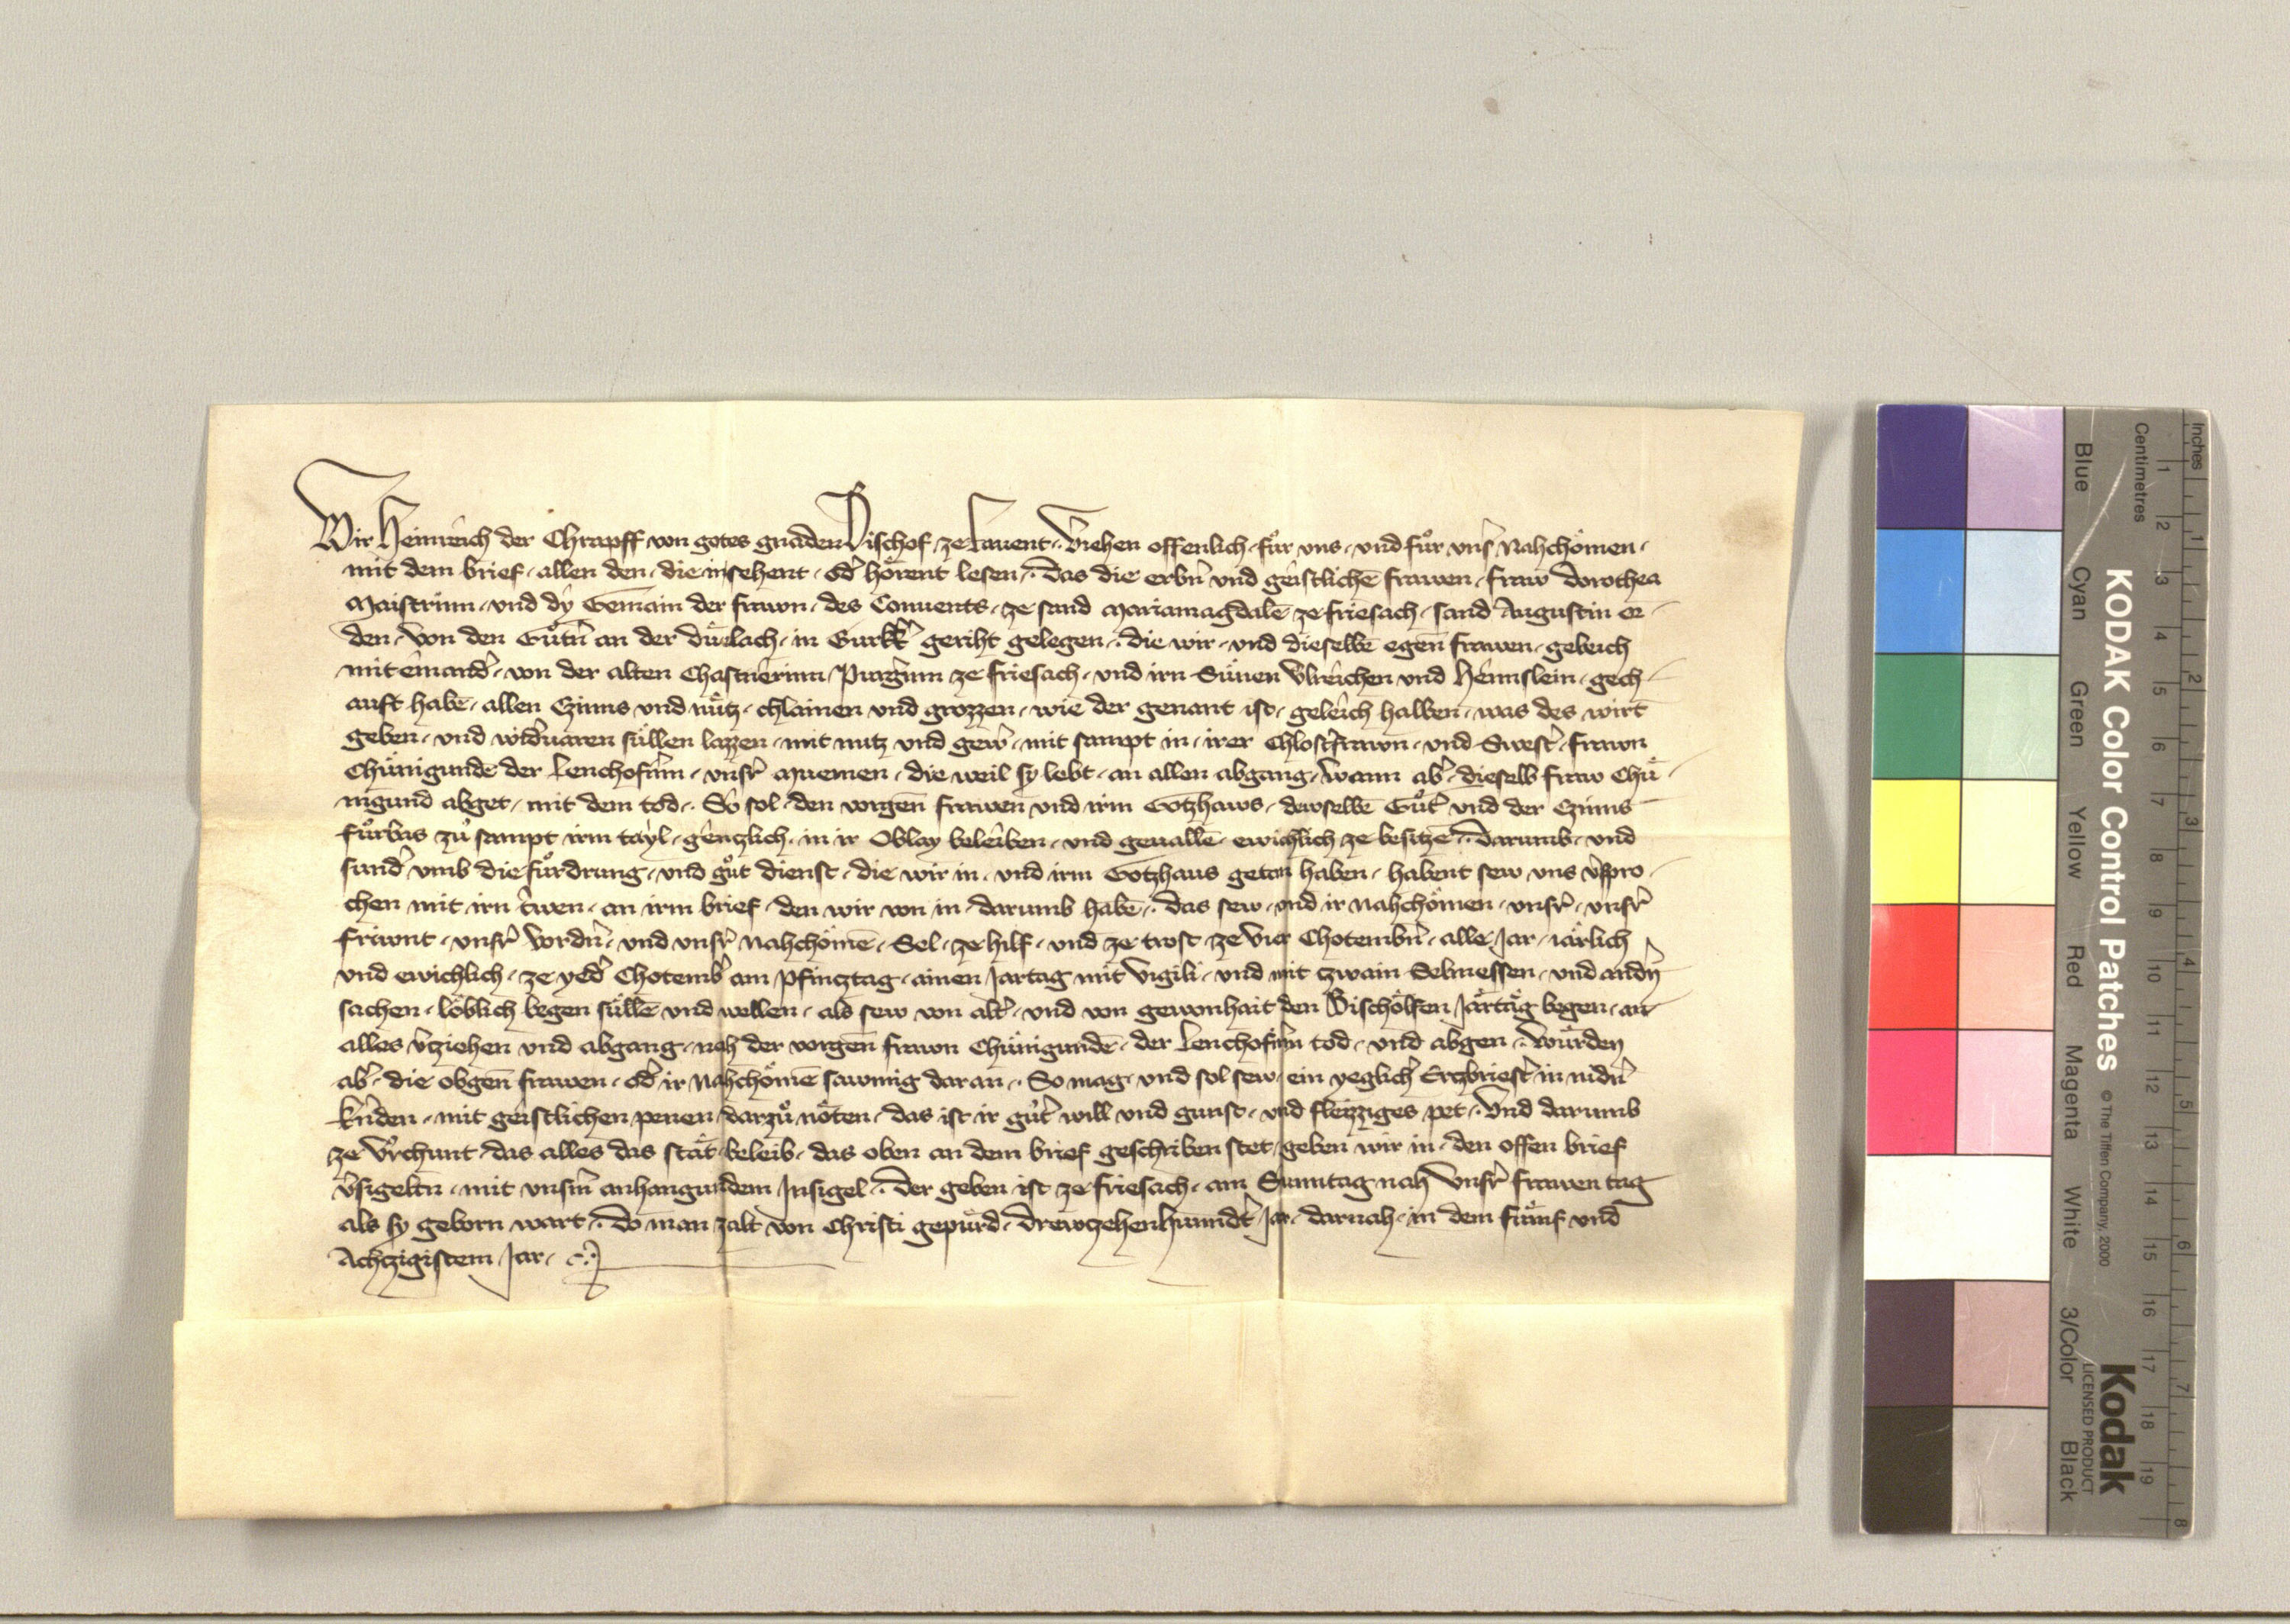 Wir Heinreich der Chrapff von gotes gnaden Bischof ze Lauent. Vriehen offenlich fuͤr vns und fuͤr vnsˀ Nahchoͤmen
mit dem brief allen den die in sehent odˀ hoͤrent lesen. Das die erbnˀ und geistlichē frawen fraw Dorothea
Maistrinn und dy Gemain der frawn des Conuents ze sand Mariamagdalē ze friesach sand Augustin or
den von den Guͤtnˀ an der Duͤelach in Gurkkˀ geriht gelegen. die wir und dieselbē egen̄ frawen geleich
mit einandˀ von der alten Chastnerinn Purgˀinn ze friesach und irn Suͤnen Vlreichen und Hennslein gech
auft habē allen Czinns und nuͤtz chlainen und grozzen wie der genant ist geleich halben was des wirt
geben und widˀuaren suͤllen lazzen mit nutz und gewˀ mit sampt in irer Chlostˀfrawn und Swestˀ frawn
Chuͤnigundē der Lenchofˀinn vnsrˀ Muemen die weil sy lebt an allen abgang. Wann abˀ dieselb fraw Chuͤ
nigund abget mit dem tod. So sol den vorgen̄ frawen und irm Gotzhaws derselbē Guͤtˀ und der Czinns
fuͤrbas zu sampt irm tayl gentzlich in ir Oblay beleiben und geuallē ewichlich ze besitzē. Darumb und
sundˀ vmb die fuͤrdrung und guͤt dienst die wir in und irm Gotzhaus getan haben habent sew vns vˀspro
chen mit irn trwen an irm brief den wir von in darumb habē. Das sew und ir nahchoͤmen vnsrˀ vnsrˀ
frawnt vnsrˀ vordnˀ und vnsrˀ nahchoͤmē Sel ze hilf und ze trost ze vier Chotembnˀ alle Jar iaͤrlich
und ewichlich ze yedˀ Chotembˀ am Pfincztag ainen Jartag mit Vigili und mit tzwain Selmessen und andnˀ
sachen loͤblich begen suͤllē und wellen als sew von altˀ und von gewonhait den Bischoͤlfen Jaͤrtaͤg begen an
alles vˀtziehen und abgang nah der vorgen̄ frawn Chuͤnigundē der Lenchofˀinn tod und abgen. Wuͤrden
abˀ die obgen̄ frawen odˀ ir nahchoͤmē sawmig daran. So mag und sol sew ein yeglichˀ Ertzbriestˀ in nidnˀ
kˀnden mit geistlichen penen darzuͤ noͤten das ist ir guͤtˀ will und gunst und fleizziges pet. Vnd darumb
ze vrchunt das alles das staͤt beleib das oben an dem brief geschriben stet geben wir in den offen brief
vˀsigeltn mit vnsmˀ anhangundem Insigel. Der geben ist ze friesach am Sunntag nah Vnsrˀ frawen tag
als sy geborn wart. Do man zalt von Christi gepuͤrd Drewtzehenhunndtˀ Jar darnah in dem fuͤnf und
Achtzigistem Jar.
KODAK Color Control Patches
© The Tiffen Company, 2000
Kodak
LICENSED PRODUCT
Blue Cyan Green Yellow Red Magenta White 3/Color Black
Inches 1 2 3 4 5 6 7 8
Centimetres 1 2 3 4 5 6 7 8 9 10 11 12 13 14 15 16 17 18 19